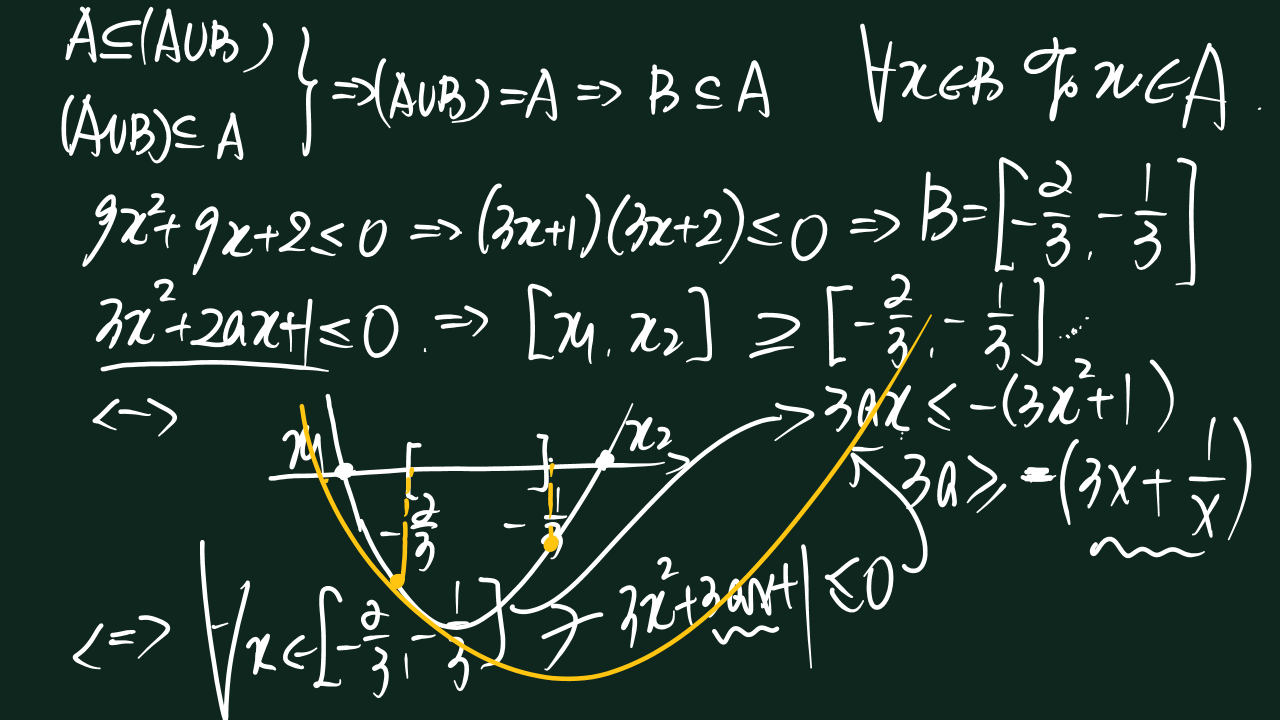 A⊆(A∪B)
(A∪B)⊆A } ⇒(A∪B)=A ⇒ B⊆A ∀x∈B x∈A
9x²+9x+2≤0 ⇒ (3x+1)(3x+2)≤0 ⇒ B=[-2/3, -1/3]
3x²+2ax+1≤0 ⇒ [x₁, x₂] ≥ [-2/3, -1/3]
<-> 3ax≤-(3x²+1)
x₁ [ ] x₂
-2/3 -1/3 3a≥-(3x+1/x)
<=> ∀x∈[-2/3, -1/3] 3x²+3ax+1≤0